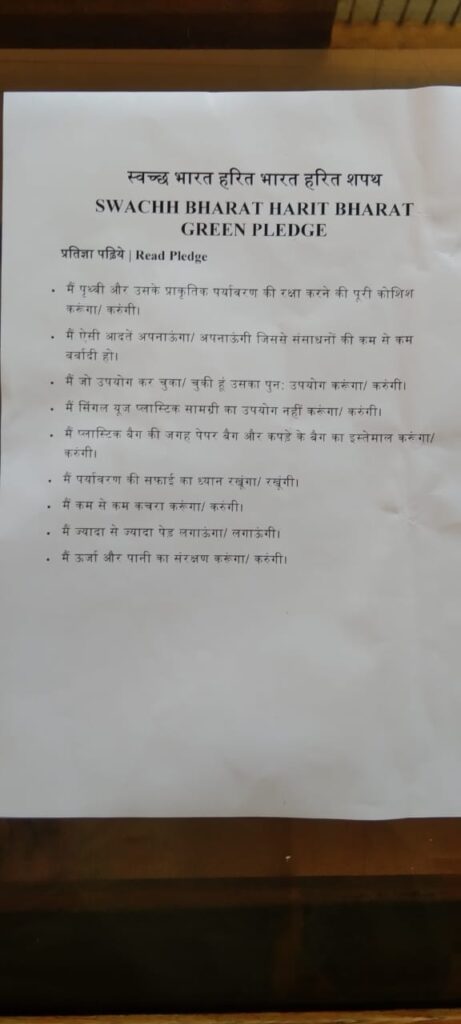 स्वच्छ भारत हरित भारत हरित शपथ
SWACHH BHARAT HARIT BHARAT
GREEN PLEDGE
प्रतिज्ञा पढ़िये | Read Pledge
• मैं पृथ्वी और उसके प्राकृतिक पर्यावरण की रक्षा करने की पूरी कोशिश
करूंगा/ करुंगी।
• मैं ऐसी आदतें अपनाऊंगा/ अपनाऊंगी जिससे संसाधनों की कम से कम
बर्बादी हो।
• मैं जो उपयोग कर चुका/ चुकी हूं उसका पुन: उपयोग करूंगा/ करुंगी।
• मैं सिंगल यूज प्लास्टिक सामग्री का उपयोग नहीं करूंगा/ करुंगी।
• मैं प्लास्टिक बैग की जगह पेपर बैग और कपड़े के बैग का इस्तेमाल करूंगा/
करुंगी।
• मैं पर्यावरण की सफाई का ध्यान रखूंगा/ रखूंगी।
• मैं कम से कम कचरा करूंगा/ करुंगी।
• मैं ज्यादा से ज्यादा पेड़ लगाऊंगा/ लगाऊंगी।
• मैं ऊर्जा और पानी का संरक्षण करूंगा/ करुंगी।